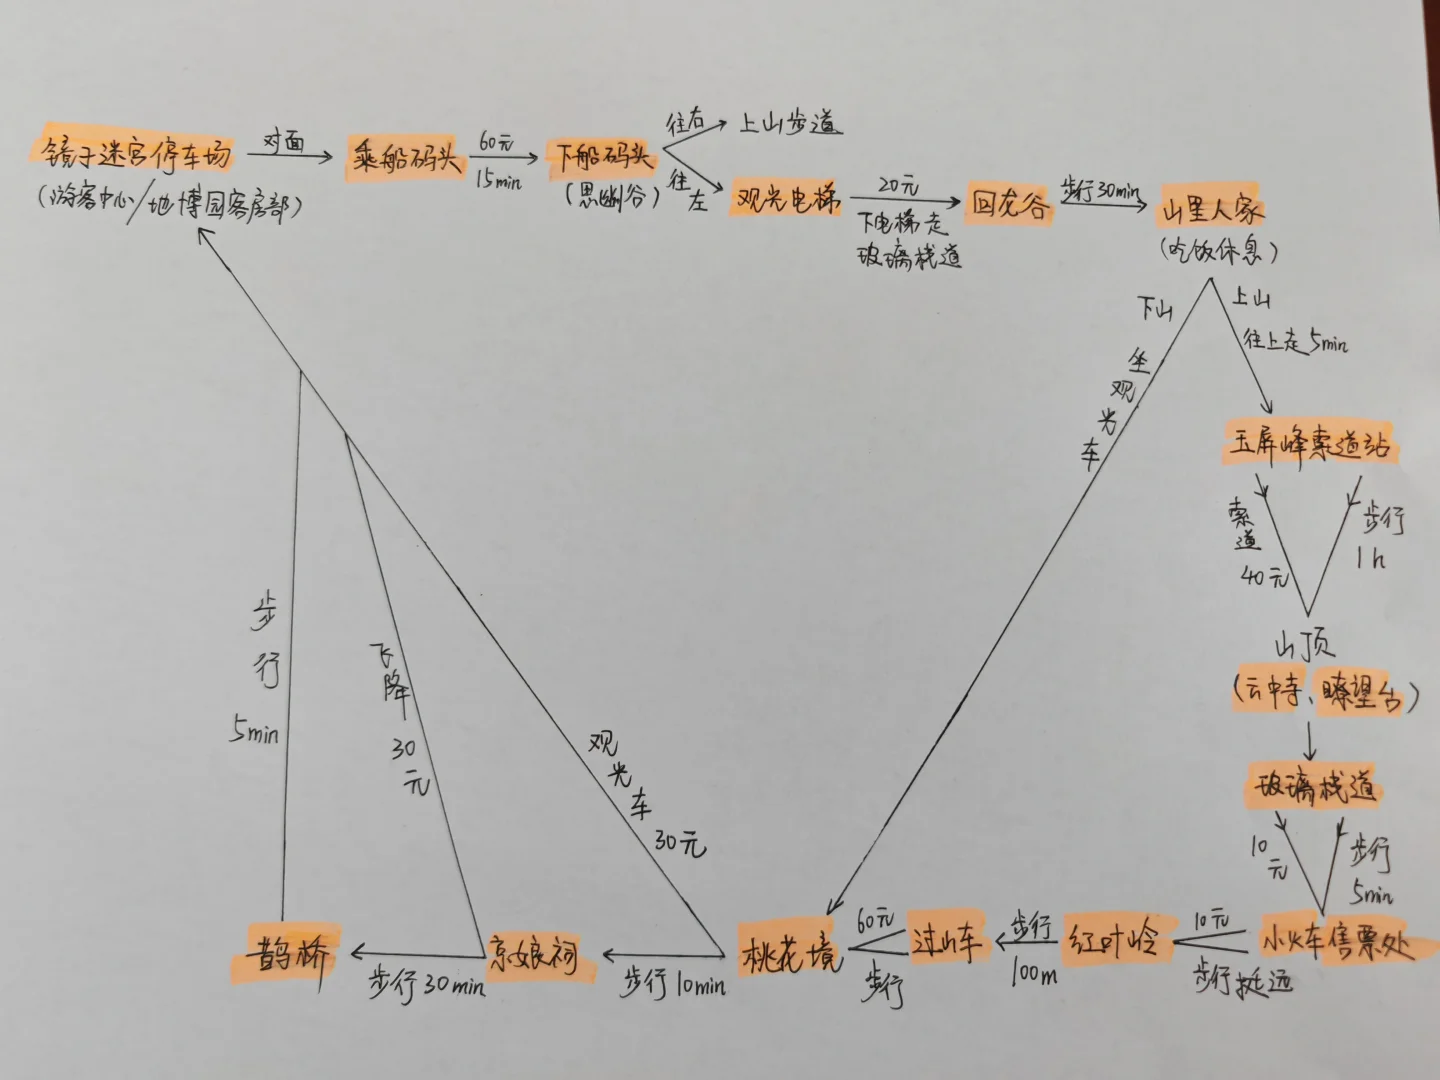 镜子迷宫停车场
(游客中心/地博园客房部)
对面
乘船码头
60元
15min
下船码头
(思幽谷)
往右
上山步道
往左
观光电梯
20元
下电梯走
玻璃栈道
回龙谷
步行30min
山里人家
(吃饭休息)
下山
坐观光车
上山
往上走5min
玉屏峰索道站
索道
40元
步行
1h
山顶
(云中寺、瞭望台)
玻璃栈道
10元
步行
5min
小火车售票处
10元
步行挺远
红叶岭
步行
100m
过山车
60元
步行
桃花境
步行10min
京娘祠
步行30min
鹊桥
观光车
30元
飞降
30元
步行
5min